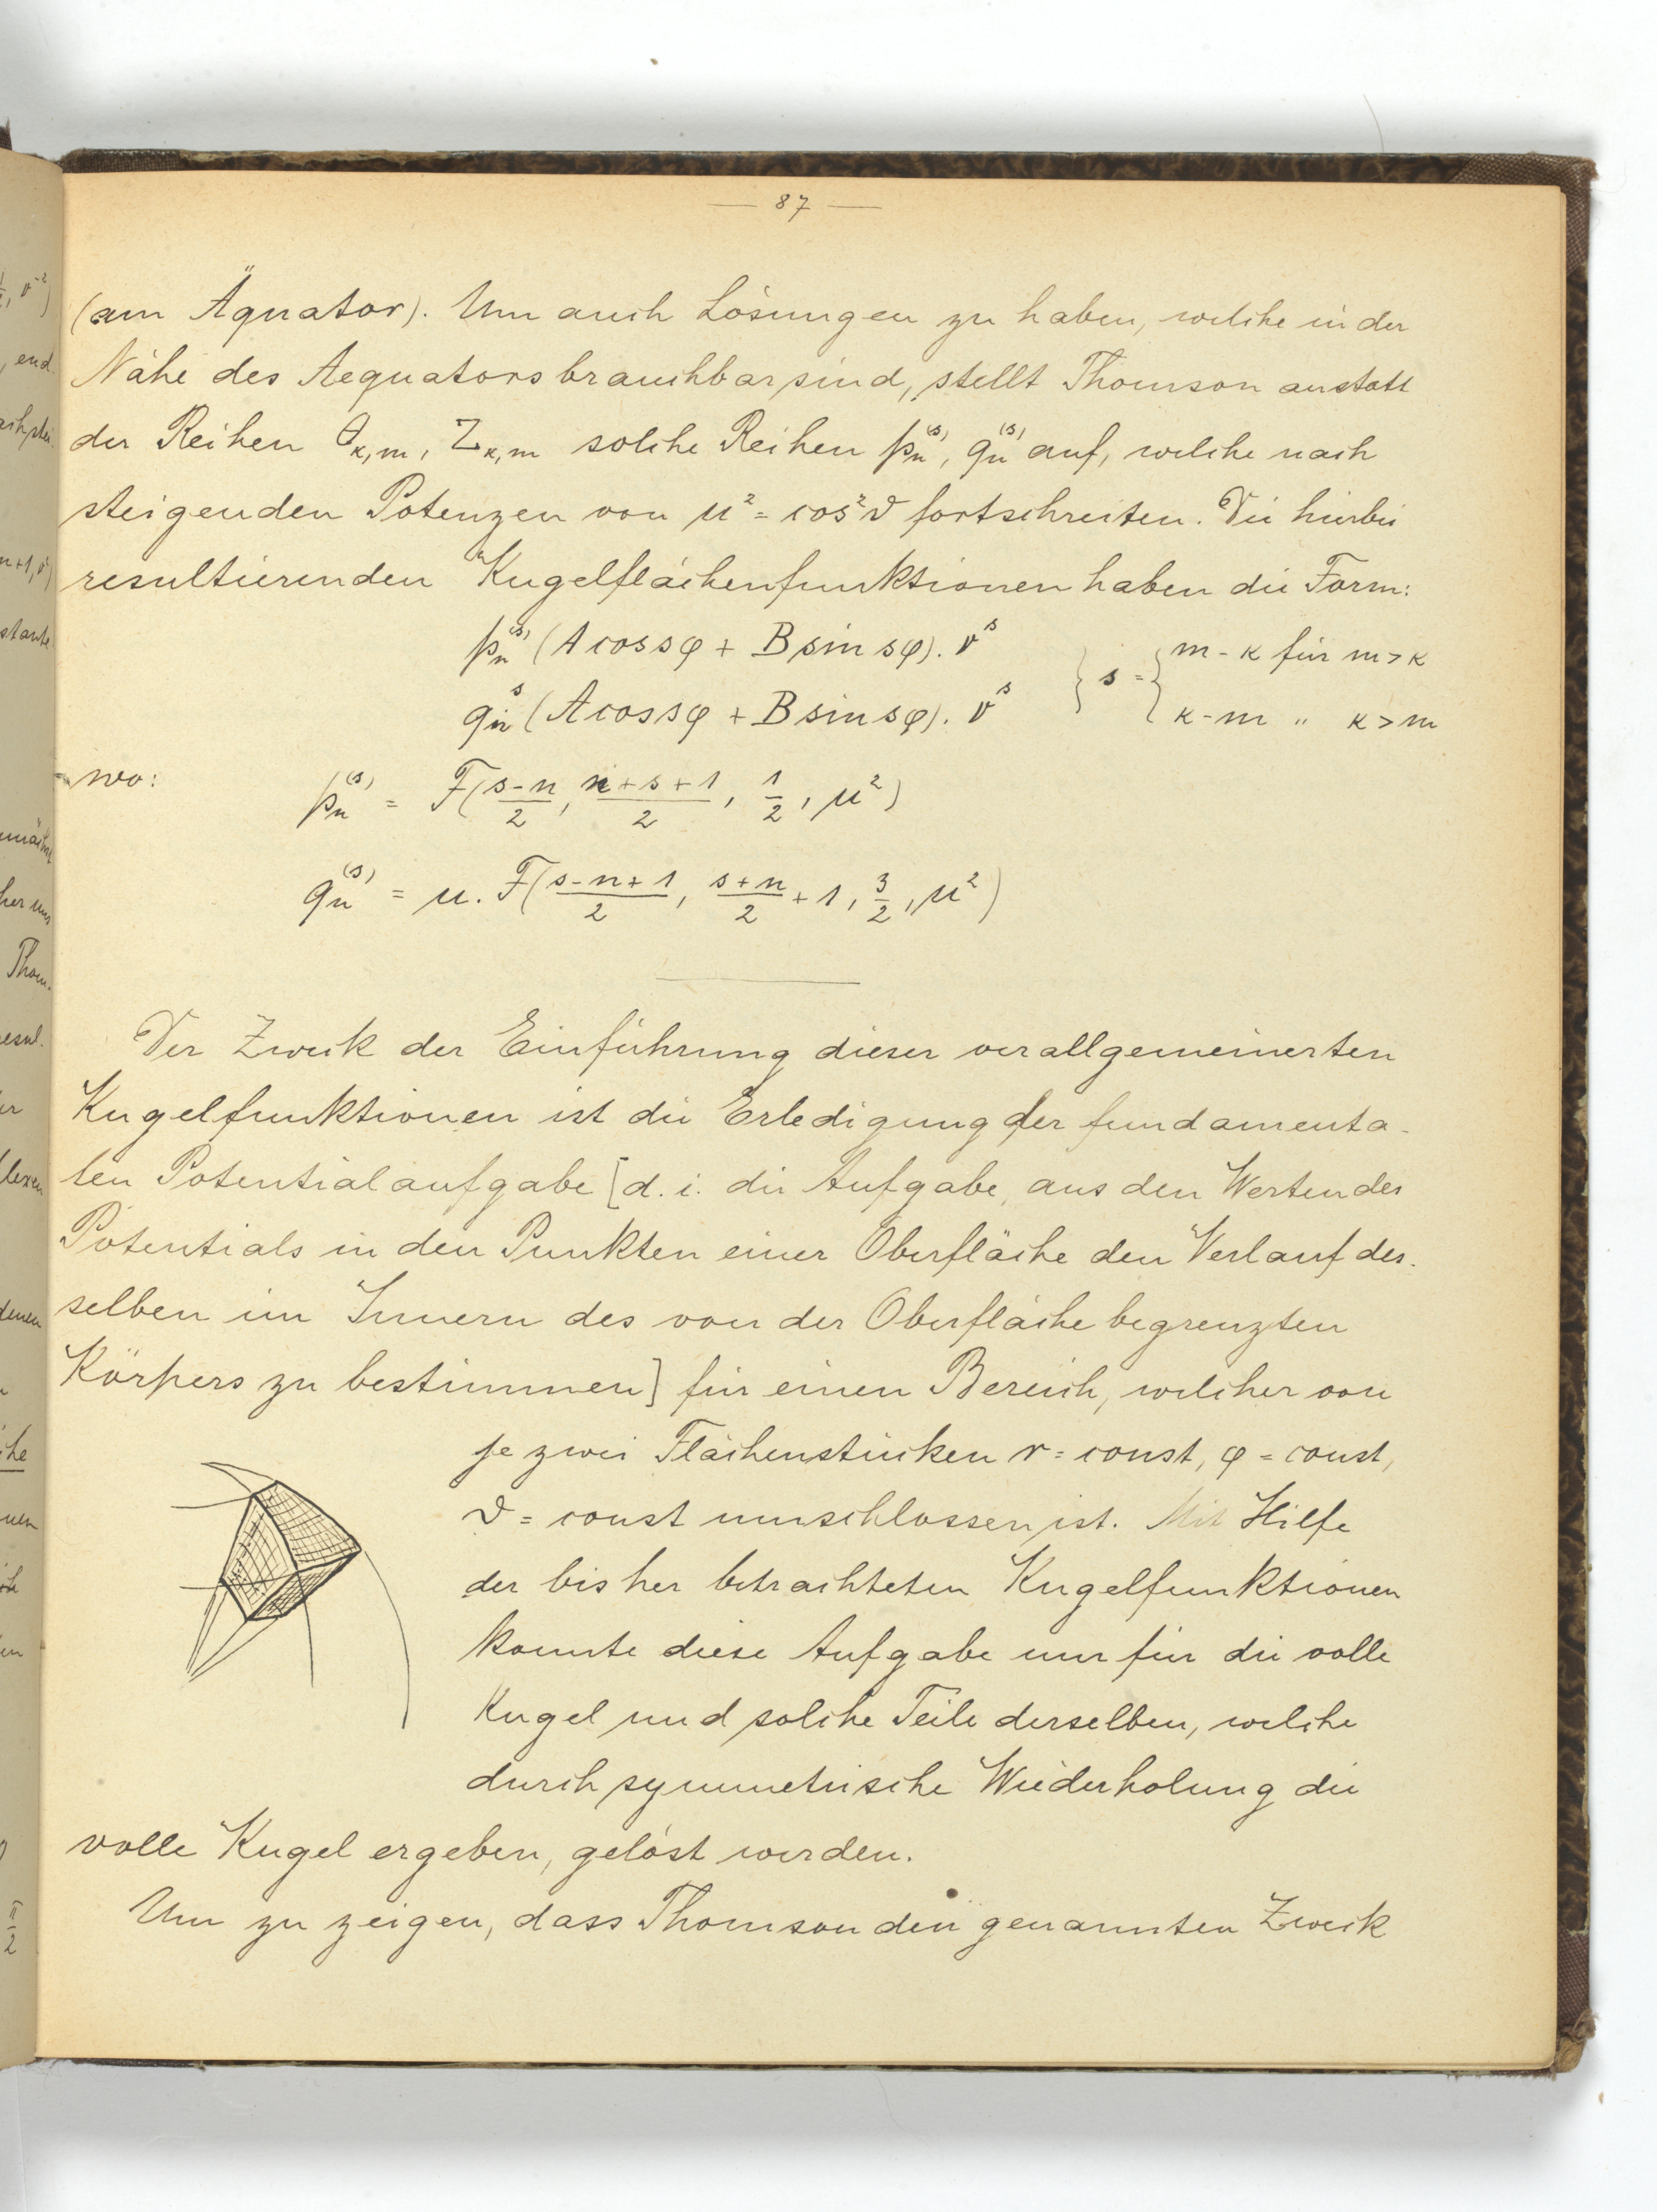 — 87 —
(am Äquator). Um auch Lösungen zu haben, welche in der
Nähe des Aequators brauchbar sind, stellt Thomson anstatt
der Reihen θ_{κ,m}, Z_{κ,m} solche Reihen p_n^{(s)}, q_n^{(s)} auf, welche nach
steigenden Potenzen von μ² = cos²ϑ fortschreiten. Die hierbei
resultierenden Kugelflächenfunktionen haben die Form:
p_n^{(s)} (A cos sφ + B sin sφ). ν^s
q_n^s (A cos sφ + B sin sφ). ν^s
} s = { m - κ für m > κ
κ - m " κ > m
wo: p_n^{(s)} = F((s-n)/2, (n+s+1)/2, 1/2, μ²)
q_n^{(s)} = μ. F((s-n+1)/2, (s+n)/2 + 1, 3/2, μ²)
Der Zweck der Einführung dieser verallgemeinerten
Kugelfunktionen ist die Erledigung der fundamenta-
len Potentialaufgabe [d. i. die Aufgabe, aus den Werten des
Potentials in den Punkten einer Oberfläche den Verlauf des-
selben im Innern des von der Oberfläche begrenzten
Körpers zu bestimmen] für einen Bereich, welcher von
je zwei Flächenstücken r = const, φ = const,
ϑ = const umschlossen ist. Mit Hilfe
der bisher betrachteten Kugelfunktionen
konnte diese Aufgabe nur für die volle
Kugel und solche Teile derselben, welche
durch symmetrische Wiederholung die
volle Kugel ergeben, gelöst werden.
Um zu zeigen, dass Thomson den genannten Zweck